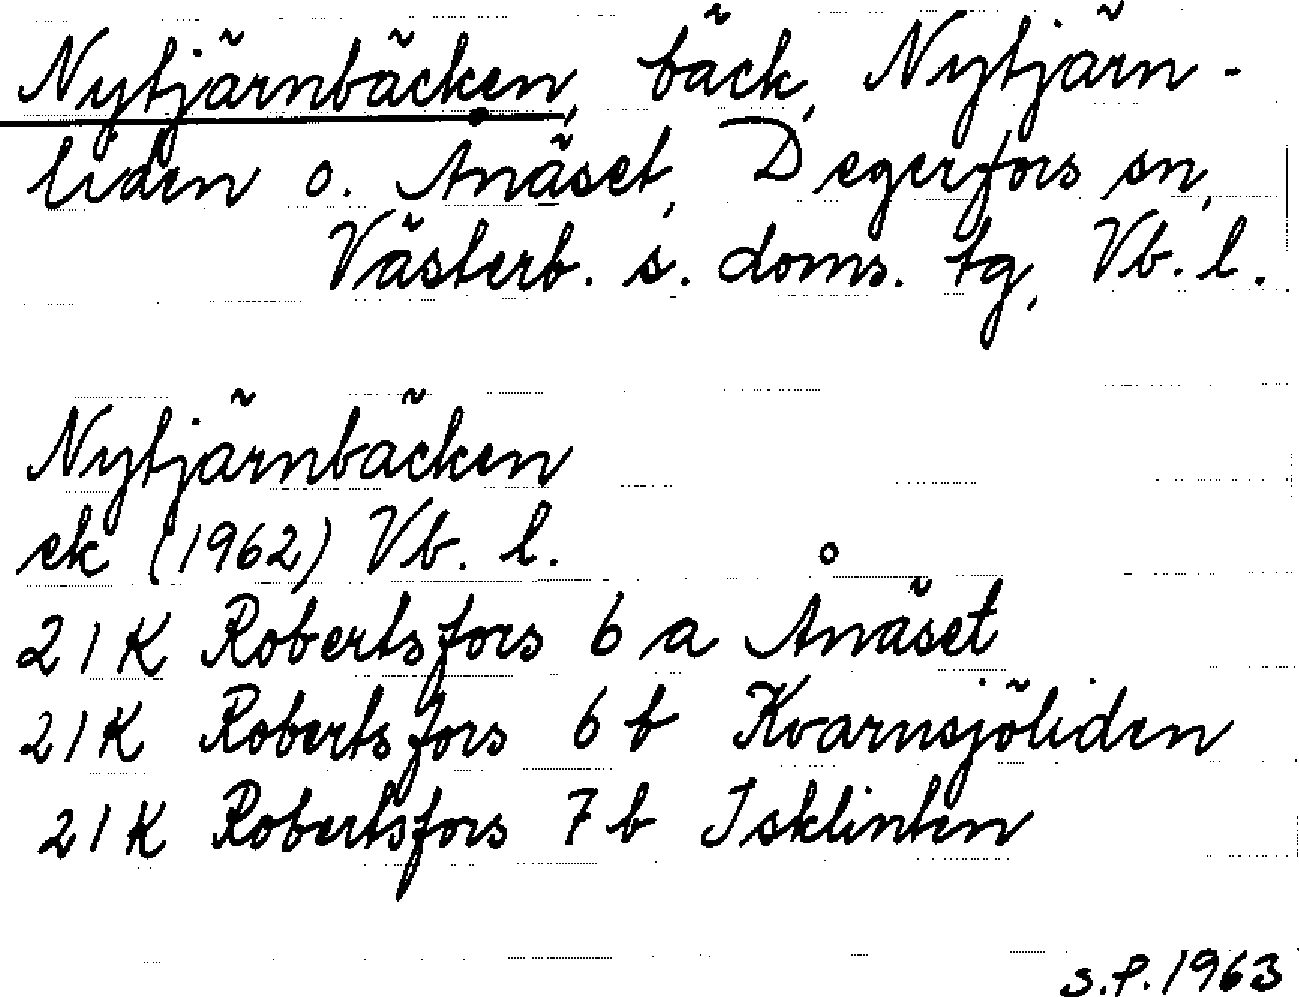 Nytjärnbäcken, bäck, Nytjärn-
liden o. Anäset, Degerfors sn,
Västerb. s. doms. tg, Vb. l.
Nytjärnbäcken
ek (1962) Vb. l.
21K Robertsfors 6 a Ånäset
21K Robertsfors 6 b Kvarnsjöliden
21K Robertsfors 7 b Isklinten
S.P. 1963